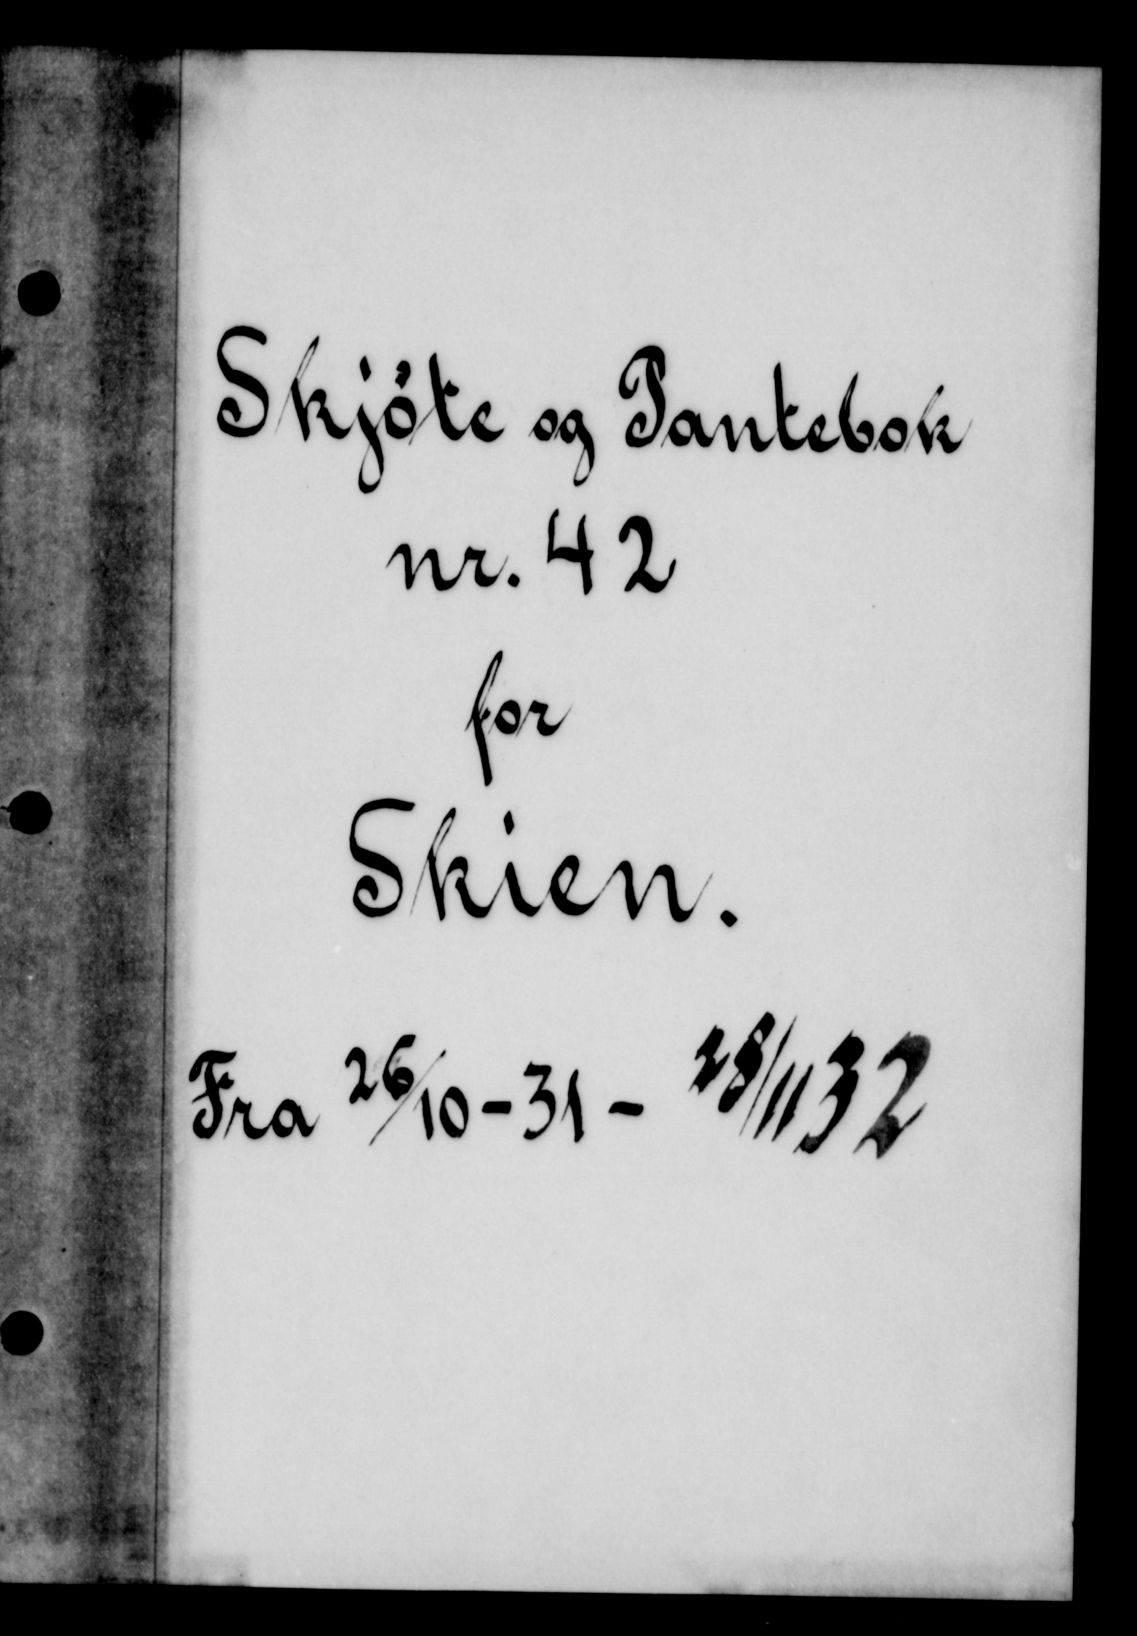 Skjöte og Pantebok
nr. 42
for
Skien.
Fra 26/10-31 - 28/11 32